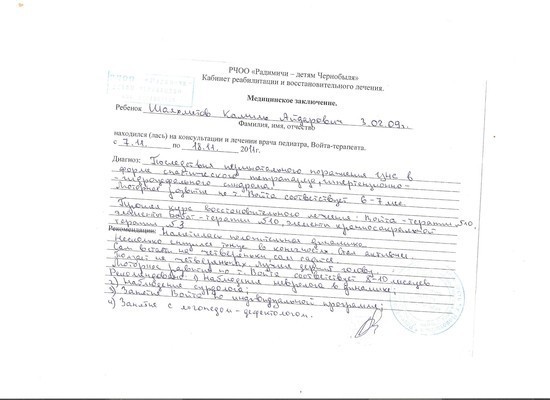 РЧОО «Радимичи – детям Чернобыля»
Кабинет реабилитации и восстановительного лечения.
Медицинское заключение.
Ребенок Шахметов Камиль Айдарович 3.02.09г.
Фамилия, имя, отчество
находился (лась) на консультации и лечении врача педиатра, Войта-терапевта.
с 7.11 по 18.11 2011г.
Диагноз: Последствия перинатального поражения ЦНС в
форме спастического тетрапареза, гипертензионно-
-гидроцефального синдрома.
Моторное развитие по т. Войта соответствует 6-7 мес.
Прошел курс восстановительного лечения: Войта-терапии №10,
элементы Бобат-терапии №10, элементы краниосакральной
терапии №3
Рекомендации: Наметилась положительная динамика
Несколько снизился тонус в конечностях. Стал активнее.
Сам встает на четвереньки, сам садится.
Ползает на четвереньках, лучше держит голову.
Моторное развитие по т. Войта соответствует 8-10 месяцев
Рекомендовано: 1) Наблюдение невролога в динамике;
2) Наблюдение сурдолога;
3) Занятия Войта по индивидуальной программе;
4) Занятия с логопедом-дефектологом.